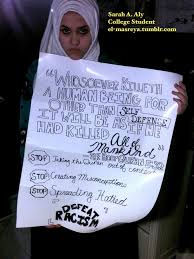 Sarah A. Aly
College Student
el-masreya.tumblr.com
"WHOSOEVER KILLETH
A HUMAN BEING FOR
OTHER THAN SELF
DEFENSE
IT WILL BE AS IF HE
HAD KILLED All of
Mankind"
STOP Taking the Quran out of context
STOP Creating Misconceptions
STOP Spreading Hatred
DEFEAT
RACISM